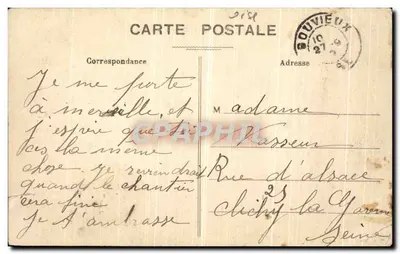 oise
CARTE POSTALE
GOUVIEUX
10
27
Correspondance
Adresse
Je me porte
à merveille, et
j'espère que toi
cis la même
chose. Je reviendrai
quand le chantier
sera fini
Je t'ambrasse
Madame
Vasseur
Rue d'alsace
25
Clichy la Garenne
Seine
CPAPHIL